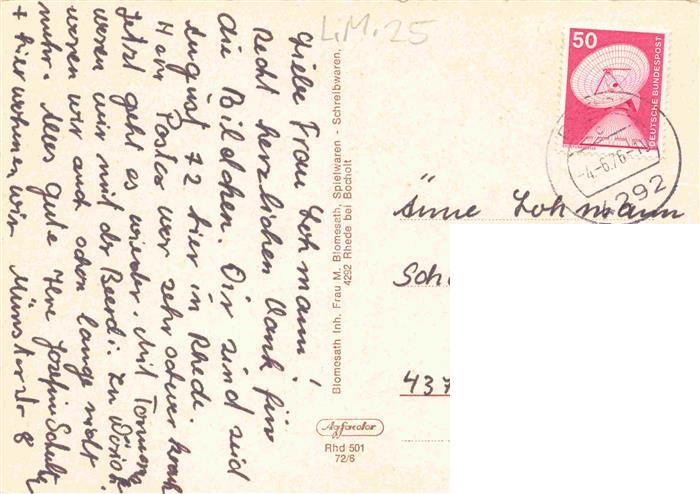 Liebe Frau Lohmann!
Recht herzlichen Dank für
die Bildchen. Wir sind seid
August 72 hier in Rhede.
Herr Pastor war sehr schwer krank
Jetzt geht es wieder. Mit
waren wir mit der Beerd. zu
waren wir auch schon lange nicht
mehr. Alles gute Ihre Josefine Schulte
+ hier wohnen wir Münsterstr 8
L.M. 25
Blomesath Inh. Frau M. Blomesath, Spielwaren - Schreibwaren,
4292 Rhede bei Bocholt
Agfacolor
Rhd 501
72/6
50
DEUTSCHE BUNDESPOST
-4.-6.76-
4292
Änne Lohmann
Sch
437